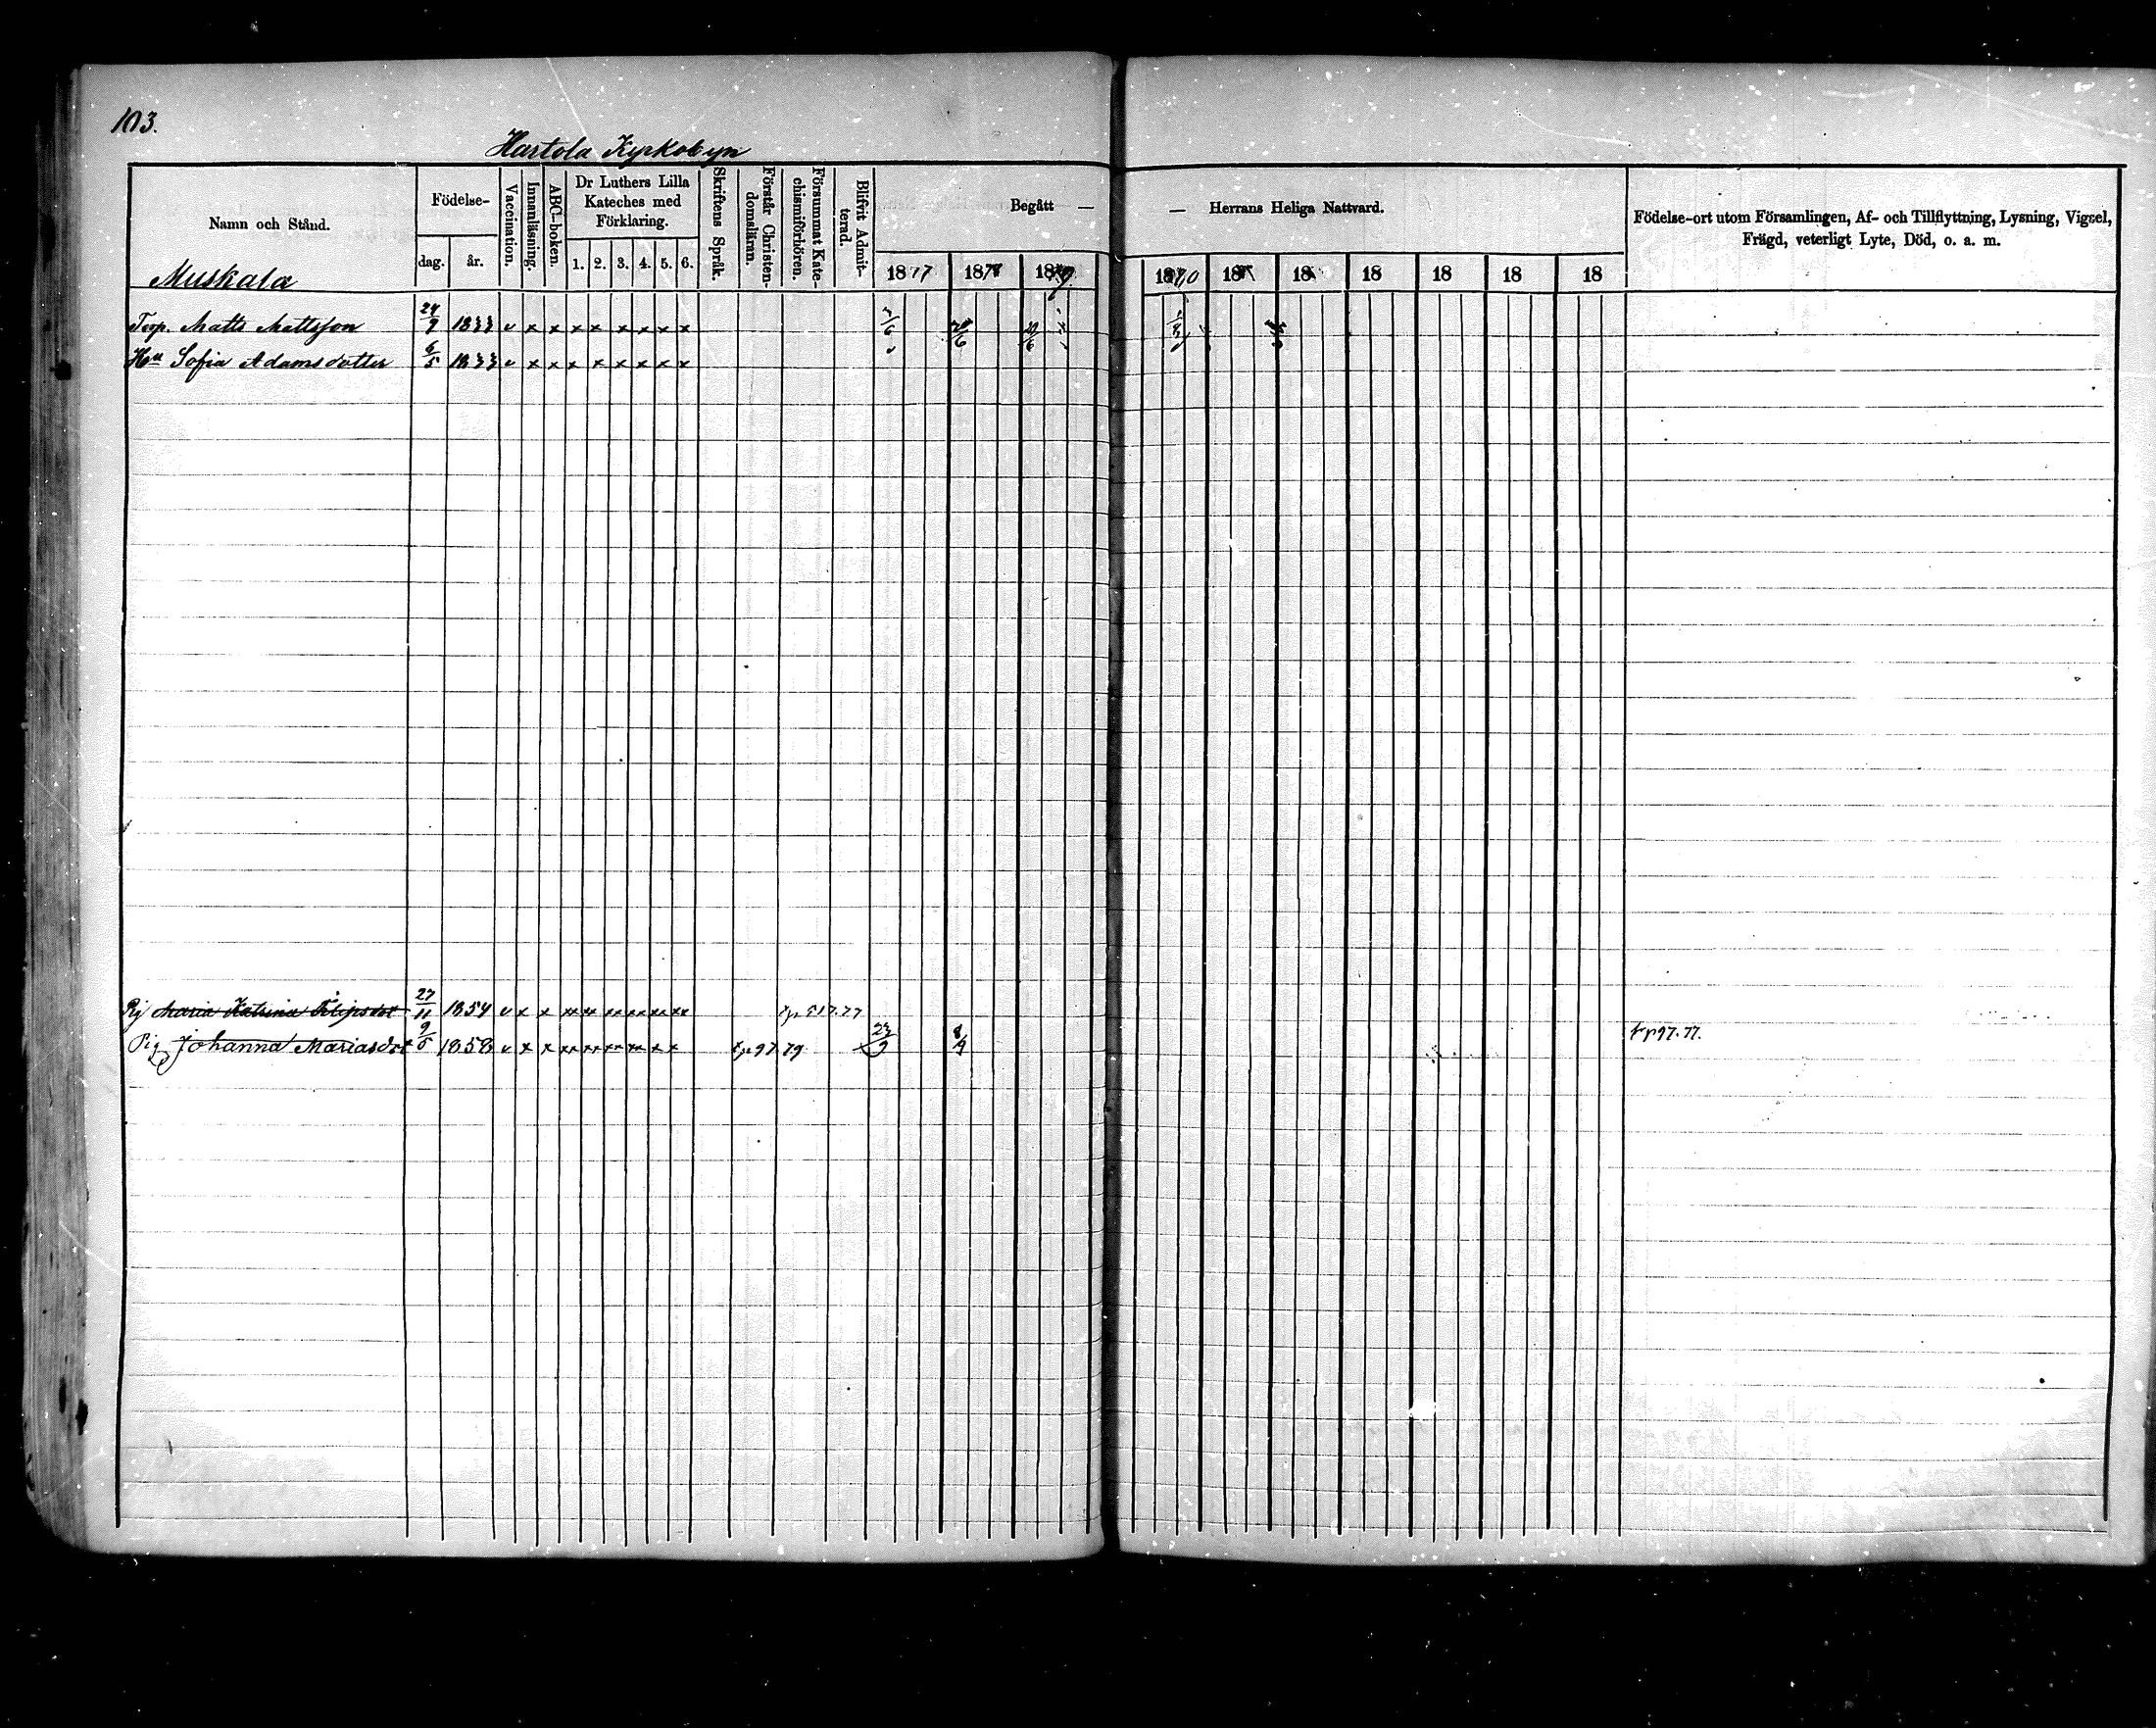 103.
Hartola Kyrkobyn
Namn och Stånd.
Födelse-
dag. år.
Vaccination.
Innanläsning.
ABC-boken.
Dr Luthers Lilla Kateches med Förklaring.
1. 2. 3. 4. 5. 6.
Skriftens Språk.
Förstår Christendomsläran.
Försummat Katechismiförhören.
Blifvit Admitterad.
Begått —
— Herrans Heliga Nattvard.
1877 1878 1879 1880 18 18 18 18 18 18
Födelse-ort utom Församlingen, Af- och Tillflyttning, Lysning, Vigsel,
Frägd, veterligt Lyte, Död, o. a. m.
Muskala
Torp. Matts Mattsson 24/9 1833 v x x x x x x x x
Hu Sofia Adamsdotter 6/5 1833 v x x x x x x x x
Pig Maria Katrina Filipsdot 27/11 1854 v x x xx xx xx xx xx xx
Pig Johanna Mariasdot 9/5 1858 v x x xx xx xx xx x x 23/9 8/9